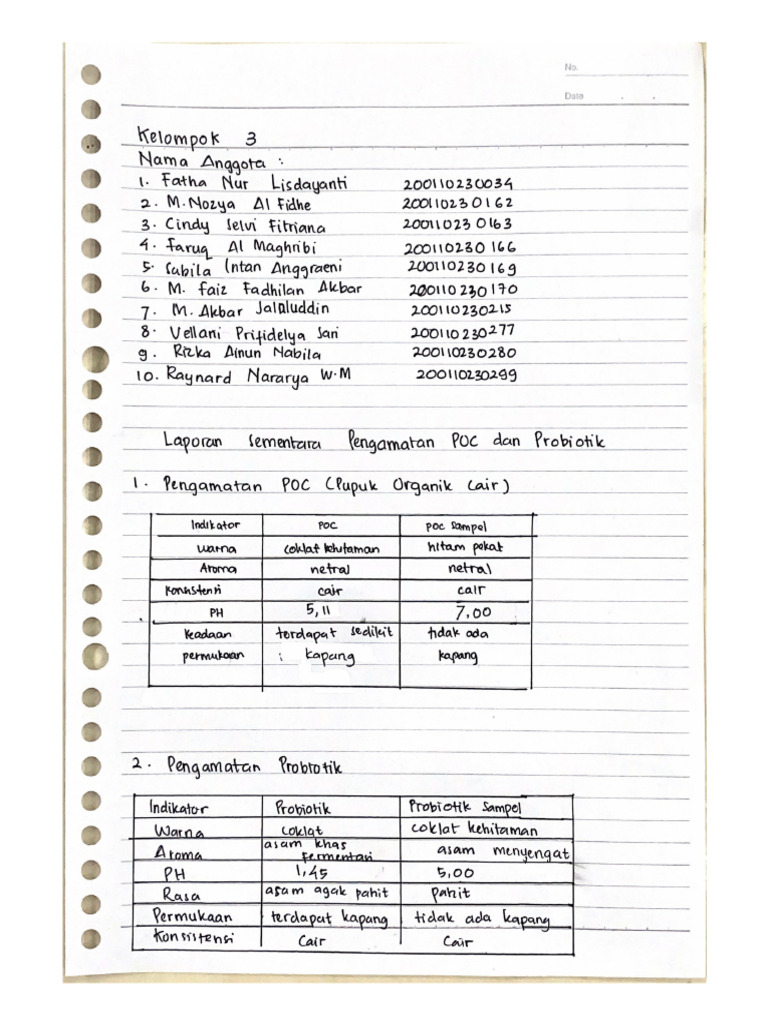 No.
Date
Kelompok 3
Nama Anggota :
1. Fatha Nur Lisdayanti 200110230034
2. M. Nozya Al Fidhe 200110230162
3. Cindy Selvi Fitriana 200110230163
4. Faruq Al Maghribi 200110230166
5. Sabila Intan Anggraeni 200110230169
6. M. Faiz Fadhilan Akbar 200110230170
7. M. Akbar Jalaluddin 200110230215
8. Vellani Prifidelya Sari 200110230277
9. Rizka Ainun Nabila 200110230280
10. Raynard Nararya W.M 200110230299
Laporan Sementara Pengamatan POC dan Probiotik
1. Pengamatan POC (Pupuk Organik Cair)
Indikator POC POC Sampel
Warna coklat kehitaman hitam pekat
Aroma netral netral
Konsistensi cair cair
PH 5,11 7,00
Keadaan terdapat sedikit tidak ada
permukaan : kapang kapang
2. Pengamatan Probiotik
Indikator Probiotik Probiotik Sampel
Warna Coklat coklat kehitaman
Aroma asam khas fermentasi asam menyengat
PH 1,45 5,00
Rasa asam agak pahit pahit
Permukaan terdapat kapang tidak ada kapang
Konsistensi Cair Cair